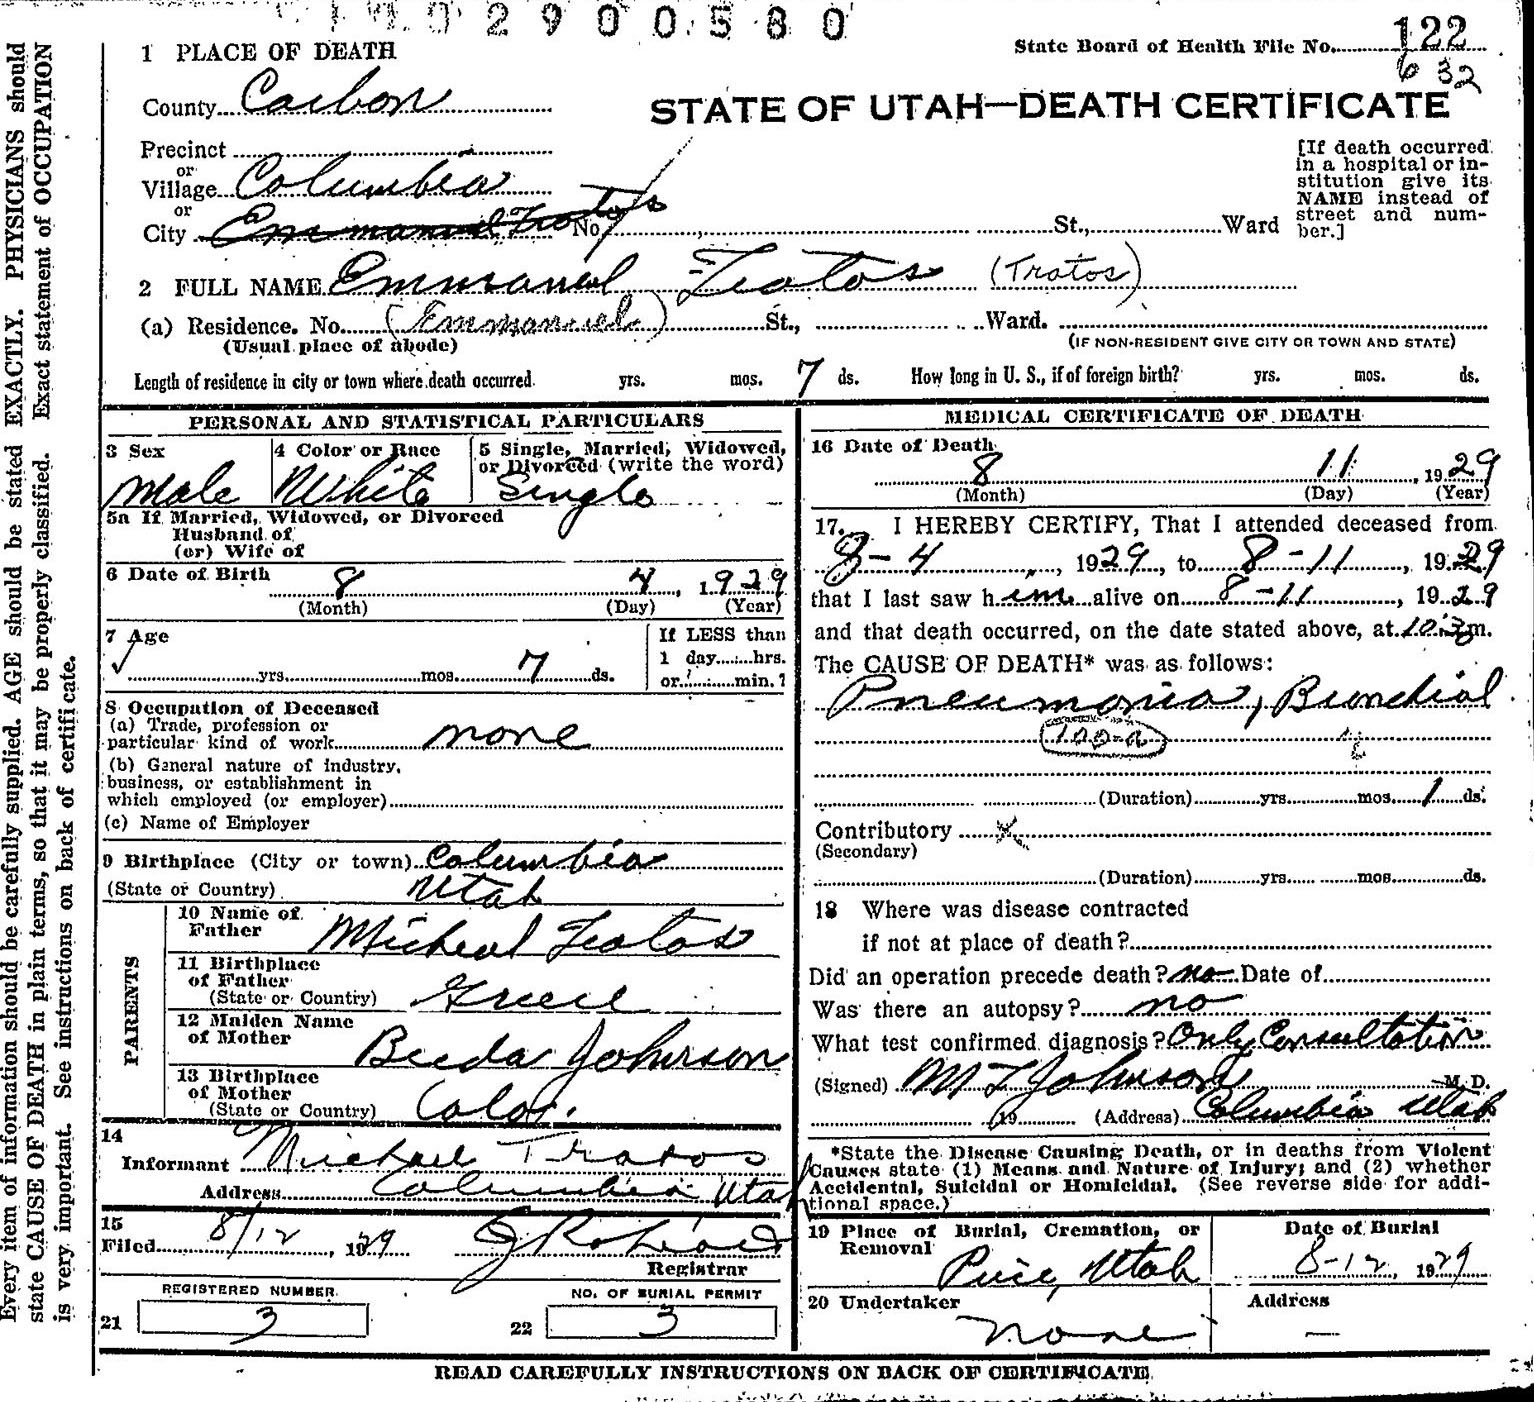 02900580
State Board of Health File No. 122
632
1 PLACE OF DEATH
County Carbon
STATE OF UTAH—DEATH CERTIFICATE
Precinct
or
Village Columbia
or
City Emmanuel Tratos No. St., Ward
[If death occurred in a hospital or institution give its NAME instead of street and number.]
2 FULL NAME Emmanuel Tratos (Tratos)
(a) Residence. No. (Emmanuel) St., Ward.
(Usual place of abode) (IF NON-RESIDENT GIVE CITY OR TOWN AND STATE)
Length of residence in city or town where death occurred yrs. mos. 7 ds. How long in U. S., if of foreign birth? yrs. mos. ds.
PERSONAL AND STATISTICAL PARTICULARS
3 Sex 4 Color or Race 5 Single, Married, Widowed,
or Divorced (write the word)
Male White Single
5a If Married, Widowed, or Divorced
Husband of
(or) Wife of
6 Date of Birth 8 4, 1929
(Month) (Day) (Year)
7 Age If LESS than
1 day......hrs.
yrs. mos. 7 ds. or......min.?
8 Occupation of Deceased
(a) Trade, profession or
particular kind of work none
(b) General nature of industry,
business, or establishment in
which employed (or employer)
(c) Name of Employer
9 Birthplace (City or town) Columbia
(State or Country) Utah
PARENTS
10 Name of
Father Micheal Tratos
11 Birthplace
of Father
(State or Country) Greece
12 Maiden Name
of Mother Johnson
13 Birthplace
of Mother
(State or Country) Colo.
14
Informant Michael Tratos
Address Columbia Utah
15
Filed 8/12, 1929
Registrar
REGISTERED NUMBER NO. OF BURIAL PERMIT
21 3 22 3
MEDICAL CERTIFICATE OF DEATH
16 Date of Death
8 11, 1929
(Month) (Day) (Year)
17. I HEREBY CERTIFY, That I attended deceased from
8-4, 1929, to 8-11, 1929
that I last saw h im alive on 8-11, 1929
and that death occurred, on the date stated above, at 10:30 m.
The CAUSE OF DEATH* was as follows:
Pneumonia, Bronchial
100-a
(Duration) yrs. mos. 1 ds.
Contributory
(Secondary)
(Duration) yrs. mos. ds.
18 Where was disease contracted
if not at place of death?
Did an operation precede death? no Date of
Was there an autopsy? no
What test confirmed diagnosis? Only Consultation
(Signed) M T Johnson M. D.
19 (Address) Columbia Utah
*State the Disease Causing Death, or in deaths from Violent
Causes state (1) Means and Nature of Injury; and (2) whether
Accidental, Suicidal or Homicidal. (See reverse side for addi-
tional space.)
19 Place of Burial, Cremation, or
Removal Date of Burial
Price, Utah 8-12, 1929
20 Undertaker Address
none —
READ CAREFULLY INSTRUCTIONS ON BACK OF CERTIFICATE
Every item of information should be carefully supplied. AGE should be stated EXACTLY. PHYSICIANS should
state CAUSE OF DEATH in plain terms, so that it may be properly classified. Exact statement of OCCUPATION
is very important. See instructions on back of certificate.